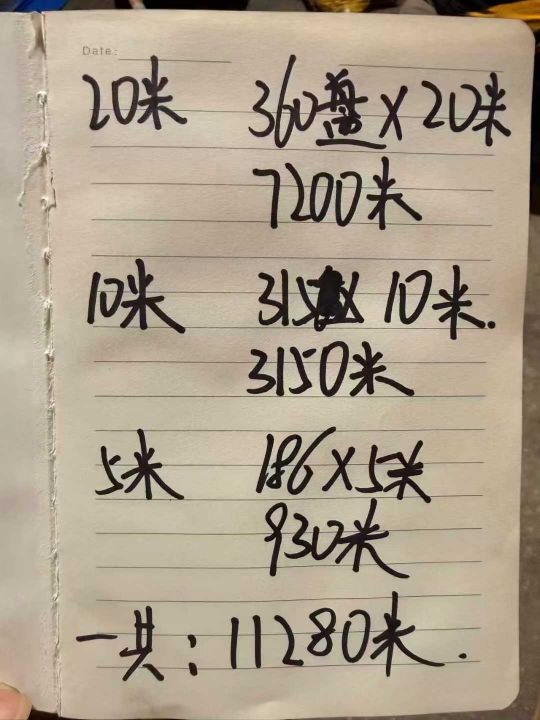 Date:
20米 360盘×20米
7200米
10米 315× 10米.
3150米
5米 186×5米
930米
一共:11280米.